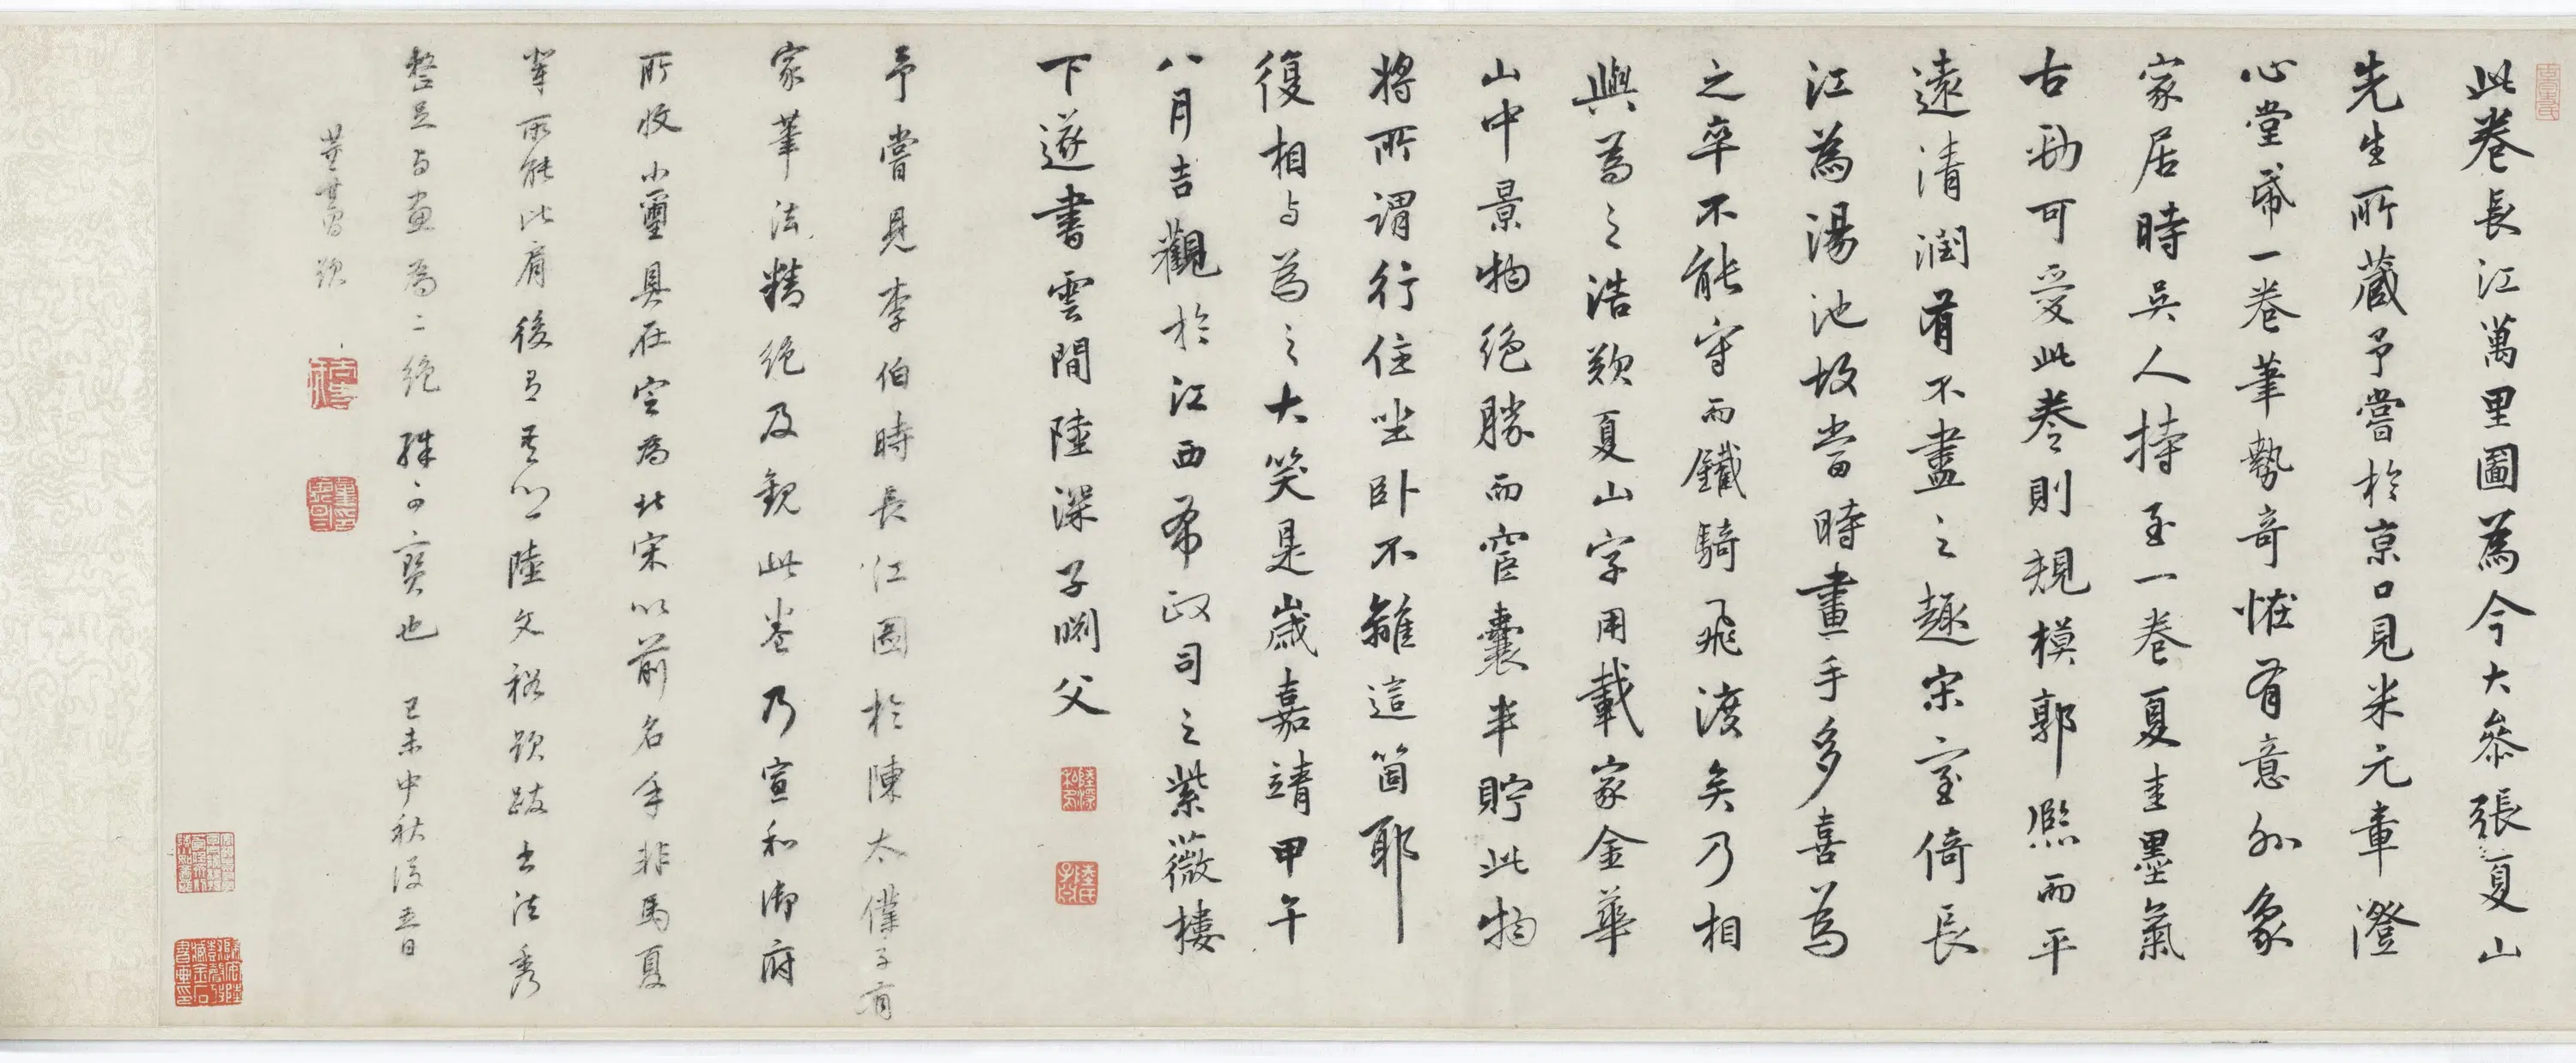 此卷長江萬里圖為今大叅張夏山
先生所藏予嘗於京口見米元章澄
心堂帋一卷筆勢奇恠有意外象
家居時吳人持至一卷夏圭墨氣
古勁可愛此卷則規模郭熈而平
遠清潤有不盡之趣宋室倚長
江為湯池故當時畫手多喜為
之卒不能守而鐵騎飛渡矣乃相
與為之浩歎夏山字用載家金華
山中景物絕勝而宦囊半貯此物
將所謂行住坐臥不離這箇耶
復相与為之大笑是歲嘉靖甲午
八月吉觀於江西布政司之紫薇樓
下遂書雲間陸深子淵父
予嘗見李伯時長江圖於陳太僕子有
家筆法精絕及觀此卷乃宣和御府
所收小璽具在定為北宋以前名手非馬夏
輩所能比肩後有吾鄉陸文裕題跋書法秀
整足与畫為二絕殊可寶也 己未中秋後五日
董其昌題